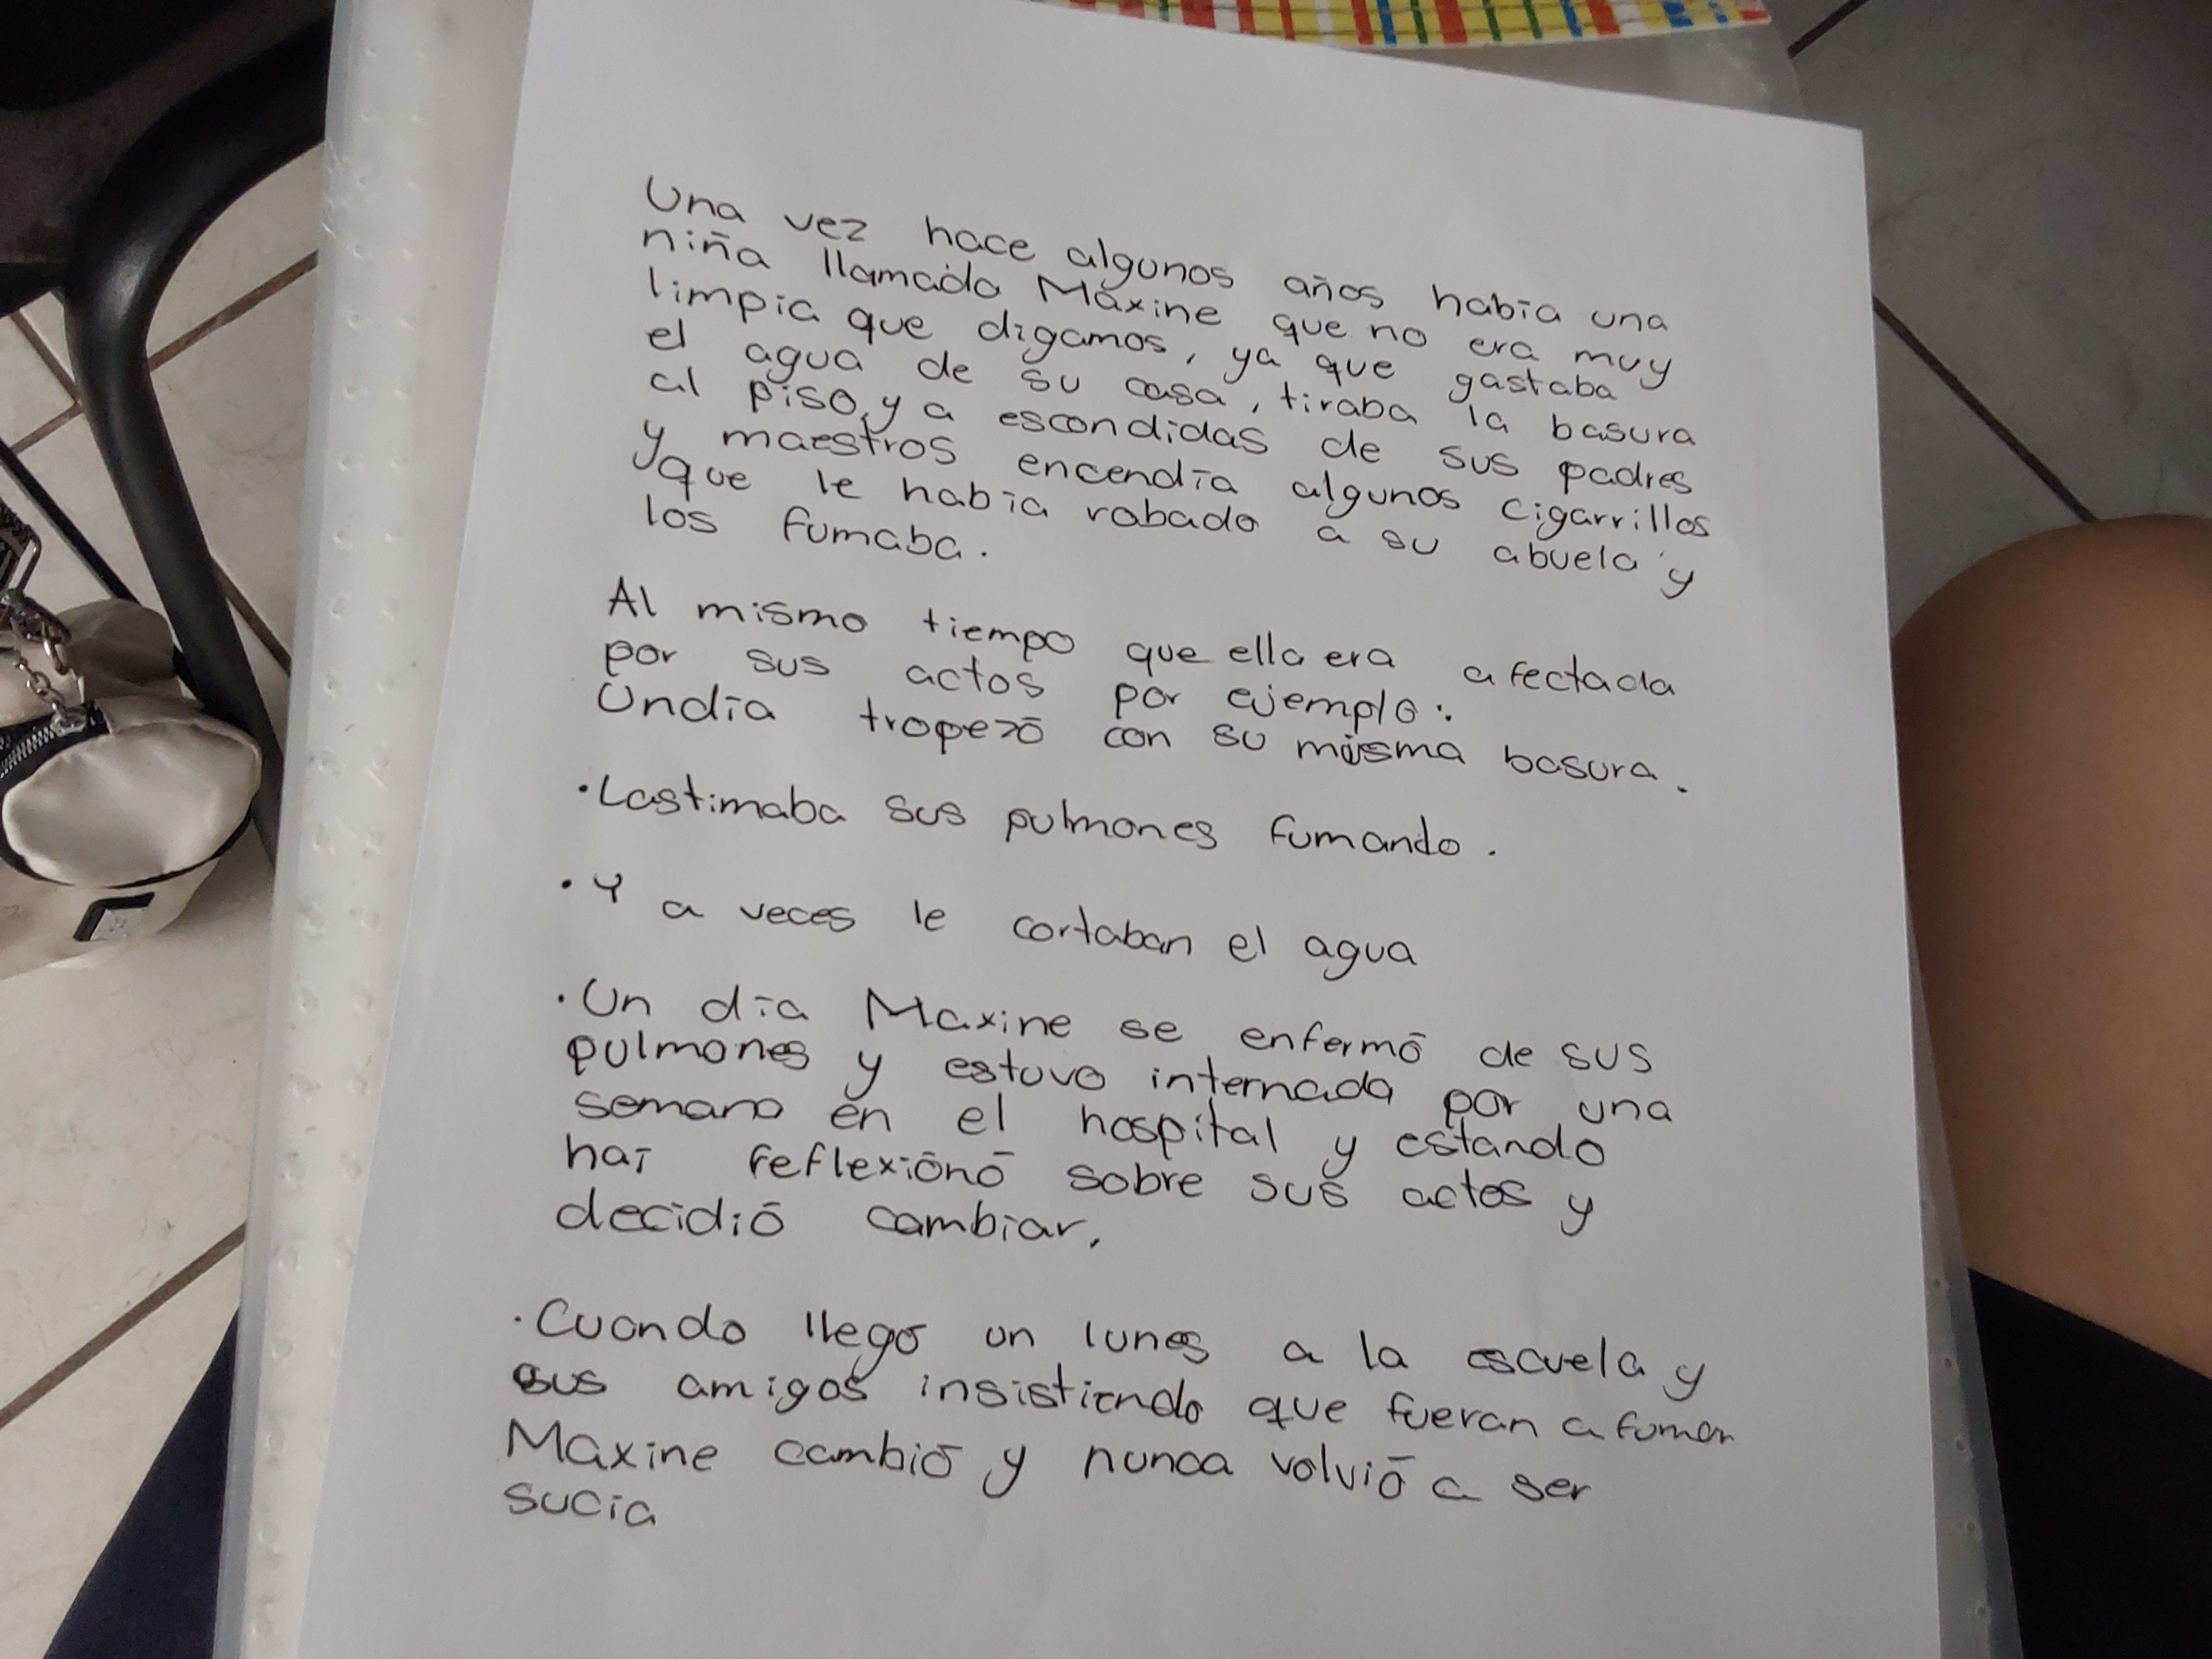 Una vez hace algunos años había una
niña llamada Maxine que no era muy
limpia que digamos, ya que gastaba
el agua de su casa, tiraba la basura
al piso, y a escondidas de sus padres
y maestros encendía algunos cigarrillos
que le había robado a su abuela y
los fumaba.
Al mismo tiempo que ella era afectada
por sus actos por ejemplo:
Undía tropezó con su misma basura.
·Lastimaba sus pulmones fumando.
·Y a veces le cortaban el agua
·Un día Maxine se enfermó de sus
pulmones y estuvo internada por una
semana en el hospital y estando
haí reflexiónó sobre sus actos y
decidió cambiar.
·Cuando llegó un lunes a la escuela y
sus amigos insistiendo que fueran a fumar
Maxine cambió y nunca volvió a ser
sucia